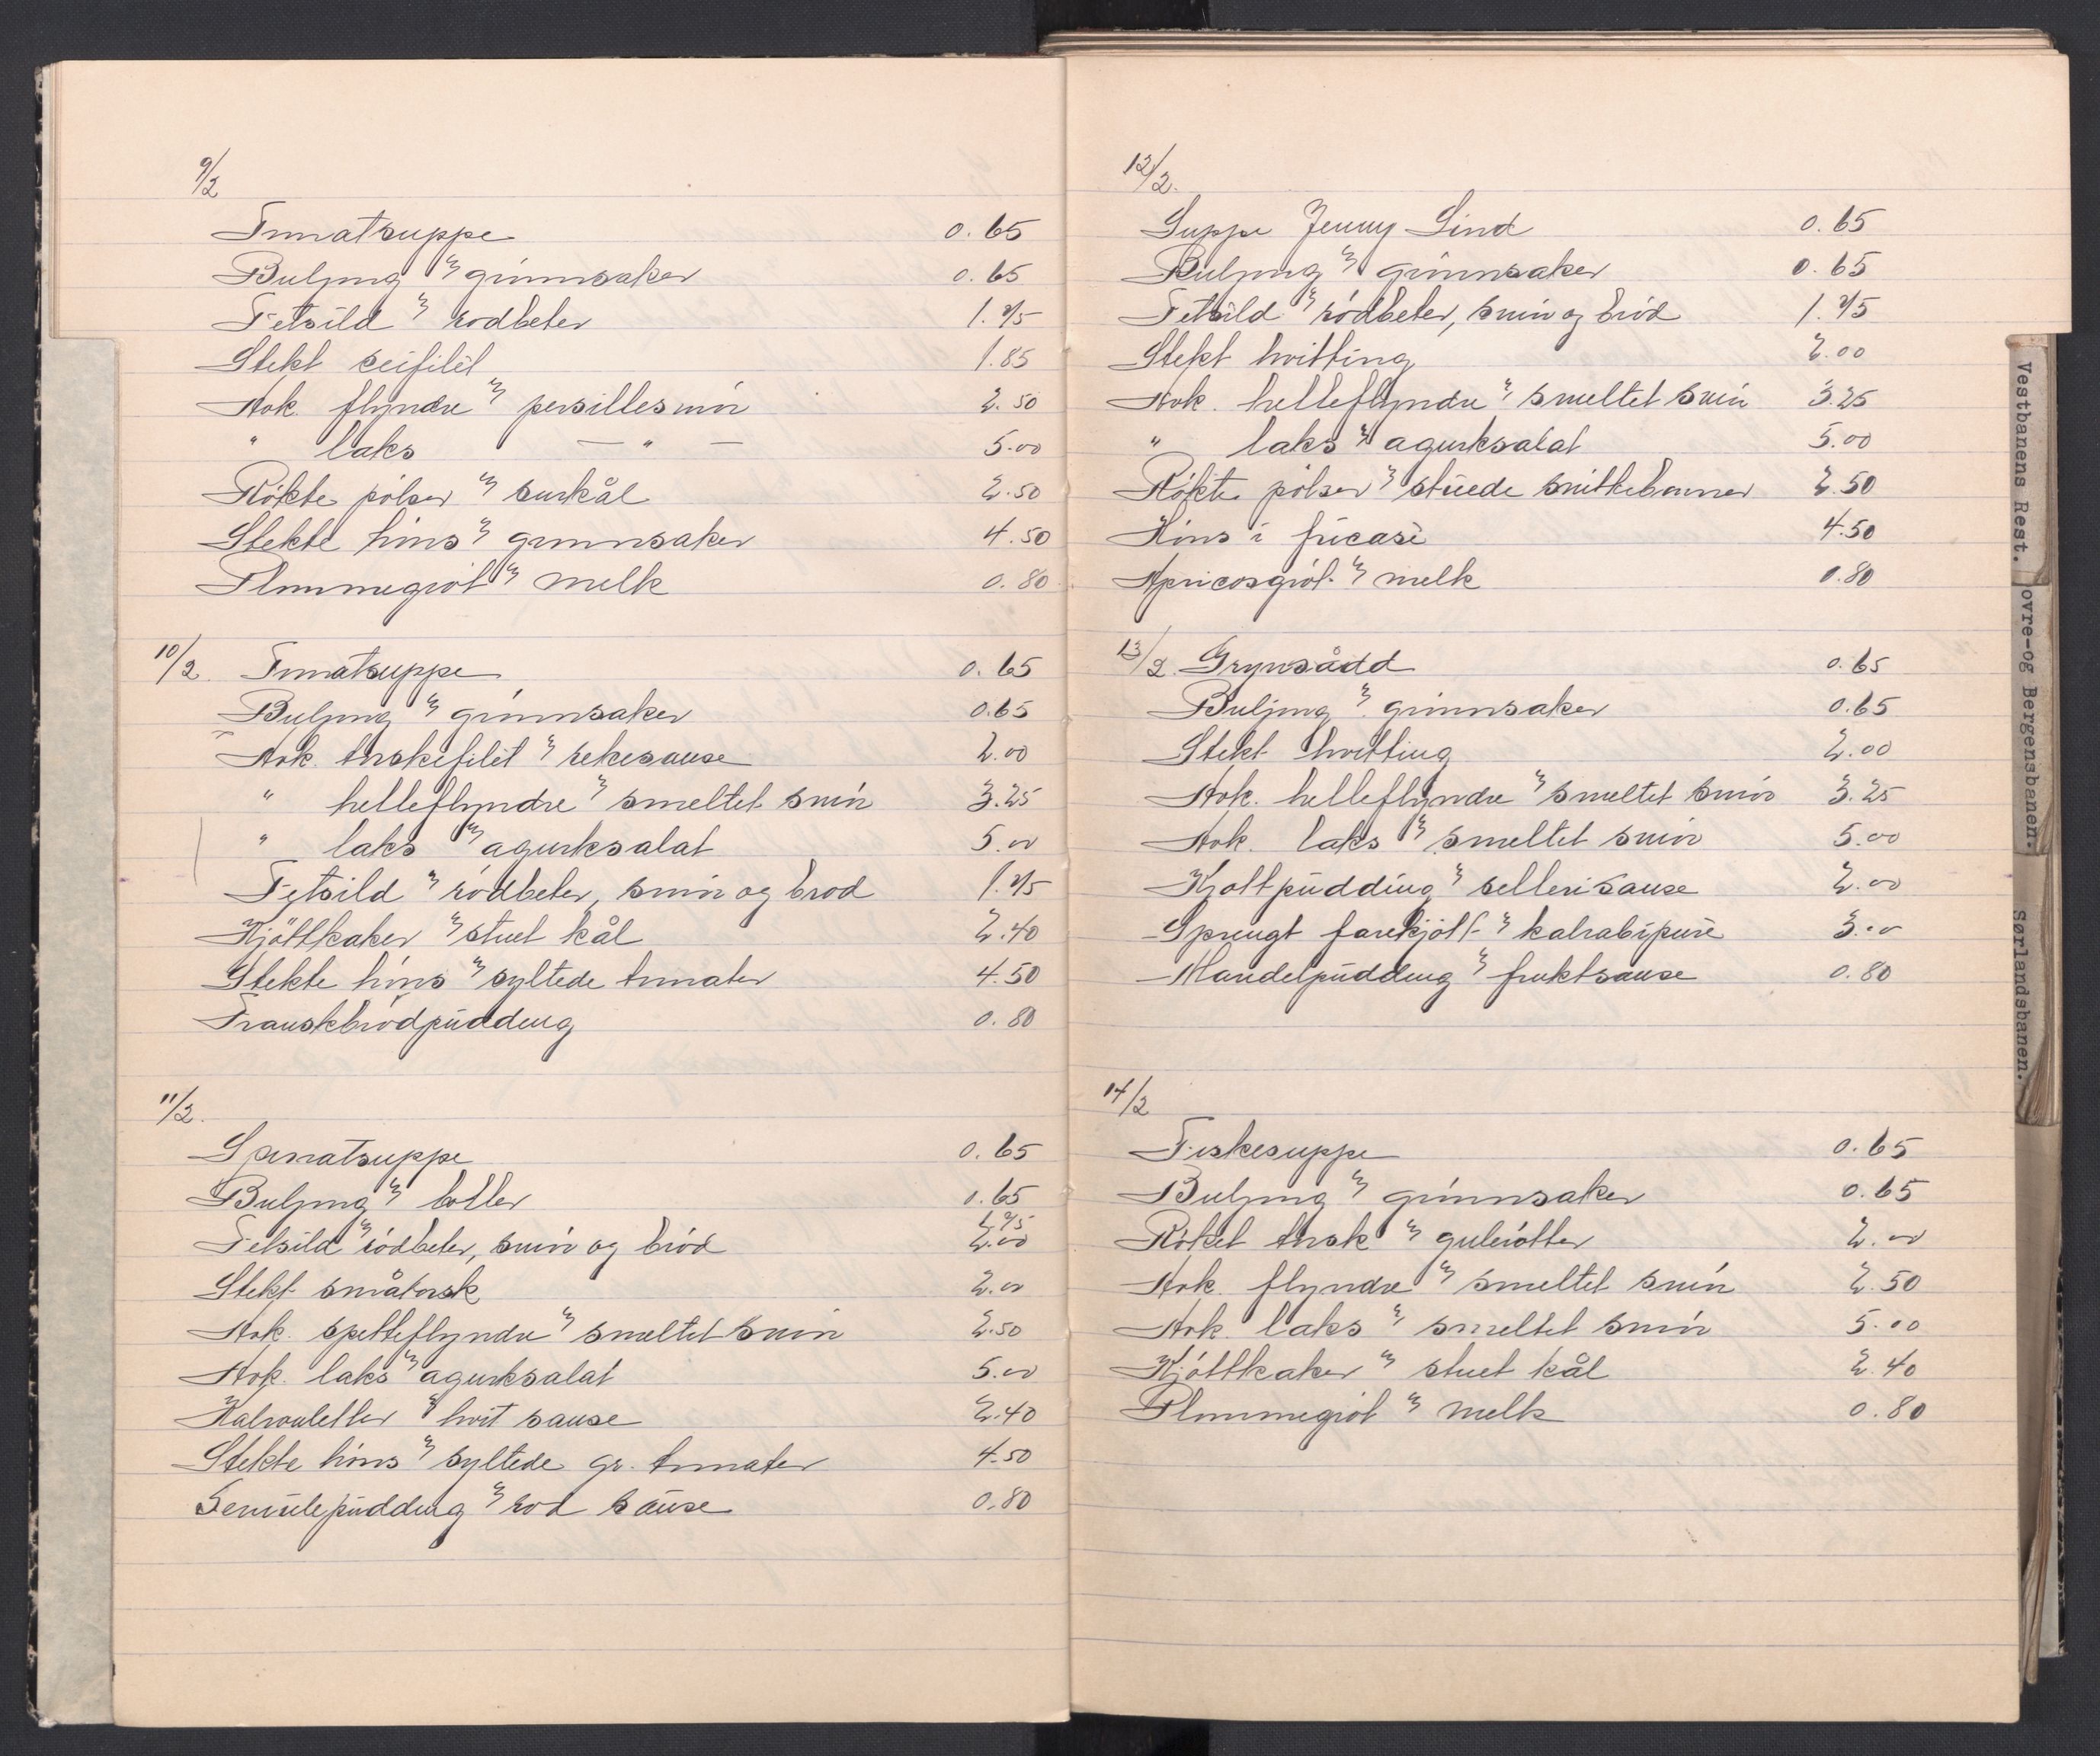 9/2
Tomatsuppe 0.65
Buljong m/ grönnsaker 0.65
Fetsild m/ rødbeter 1.75
Stekt seifilet 1.85
Kok. flyndre m/ persillesmør 2.50
" laks — " — 5.00
Rökte pölser m/ surkål 2.50
Stekte höns m/ grønnsaker 4.50
Plommegröt m/ melk 0.80
10/2 Tomatsuppe 0.65
Buljong m/ grönnsaker 0.65
Kok. torskefilet m/ rekesause 2.00
" helleflyndre m/ smeltet smör 3.25
" laks m/ agurksalat 5.00
Fetsild m/ rödbeter, smör og brød 1.75
Kjöttkaker m/ stuet kål 2.40
Stekte höns m/ syltede tomater 4.50
Franskbrödpudding 0.80
11/2.
Spinatsuppe 0.65
Buljong m/ boller 0.65
1.75
Fetsild m/ rödbeter, smör og bröd 2.00
Stekt småtorsk 2.00
Kok. spetteflyndre m/ smeltet smör 2.50
Kok. laks m/ agurksalat 5.00
Kalvouletter m/ hvit sause 2.40
Stekte höns m/ syltede gr. tomater 4.50
Semulepudding m/ rød sause 0.80
12/2.
Suppe Jenny Lind 0.65
Buljong m/ grönnsaker 0.65
Fetsild m/ rödbeter, smör og bröd 1.75
Stekt hvitting 2.00
Kok. helleflyndre m/ smeltet smör 3.25
" laks m/ agurksalat 5.00
Rökte pölser m/ stuede snittebønner 2.50
Höns i fricasé 4.50
Apricosgröt m/ melk 0.80
13/2. Grynsådd 0.65
Buljong m/ grönnsaker 0.65
Stekt hvitting 2.00
Kok. helleflyndre m/ smeltet smör 3.25
Kok. laks m/ smeltet smör 5.00
Kjøttpudding m/ sellerisause 2.00
Sprengt farekjött m/ kalrabipure 3.00
Mandelpudding m/ fruktsause 0.80
14/2
Fiskesuppe 0.65
Buljong m/ grönnsaker 0.65
Röket torsk m/ gulerötter 2.00
Kok. flyndre m/ smeltet smör 2.50
Kok. laks m/ smeltet smör 5.00
Kjöttkaker m/ stuet kål 2.40
Plommegröt m/ melk 0.80
Vestbanens Rest.
ovre-og Bergensbanen.
Sørlandsbanen.